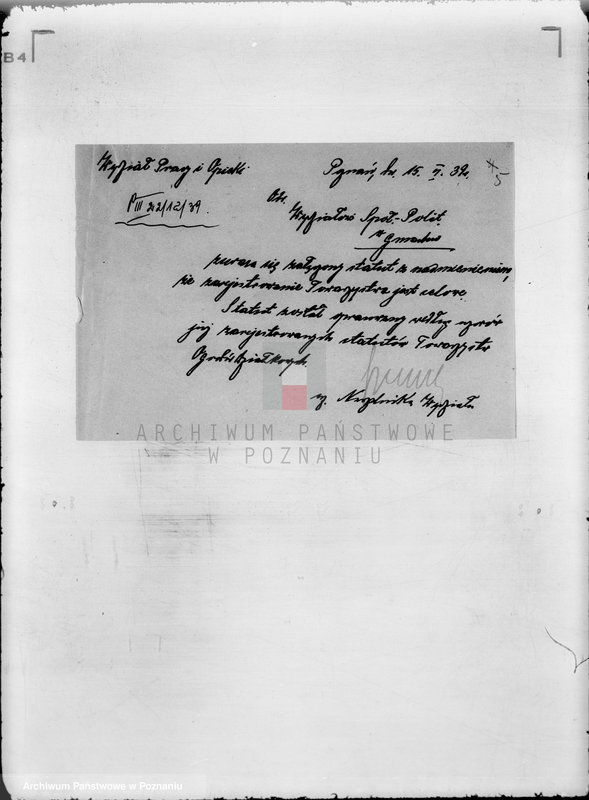 B4
Wydział Pracy i Opieki Poznań, dn. 15. V. 39r.
5
VIII 22/12/39.
Do
Wydziału Społ.-Polit.
w gmachu
zwraca się załączony statut z nadmienieniem,
że zarejestrowanie Towarzystwa jest celowe
Statut został opracowany według wzoru
już zarejestrowanych statutów Towarzystw
Ogródków Działkowych.
z. Naczelnika Wydziału
ARCHIWUM PAŃSTWOWE
W POZNANIU
Archiwum Państwowe w Poznaniu